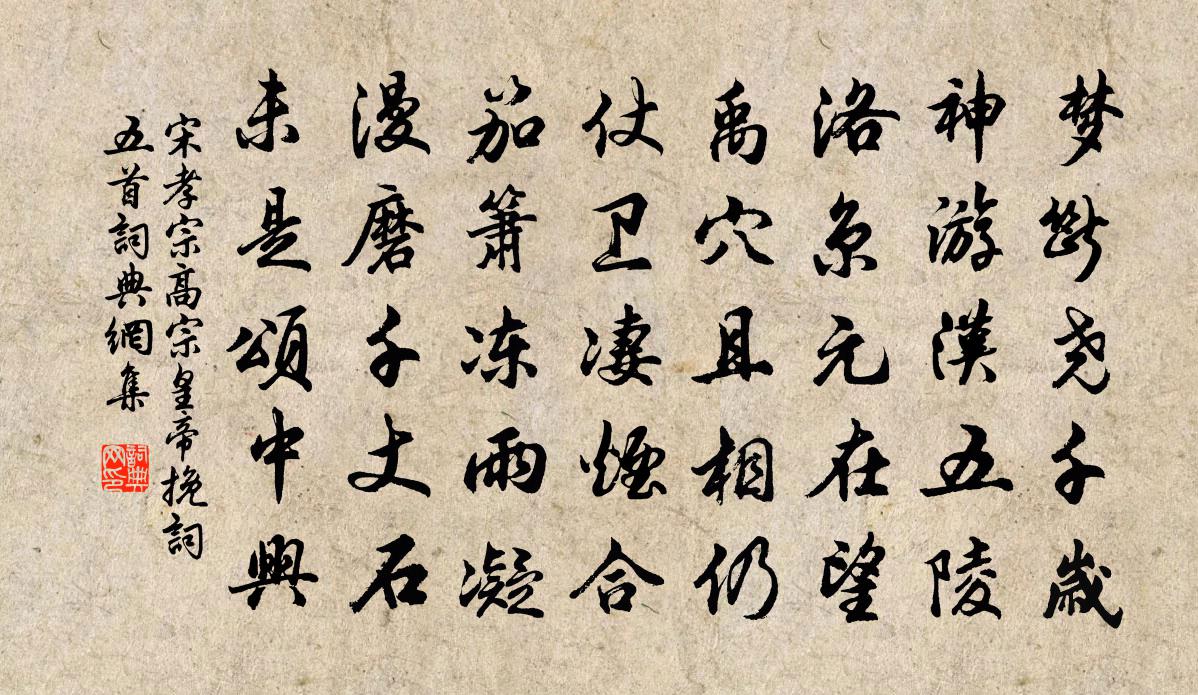 梦断尧千歲
神游漢五陵
洛京元在望
禹穴且相仍
仗卫凄煙合
笳簫冻雨凝
漫磨千丈石
未是頌中興
宋孝宗高宗皇帝挽詞
五首詞典網集
詞典
网印